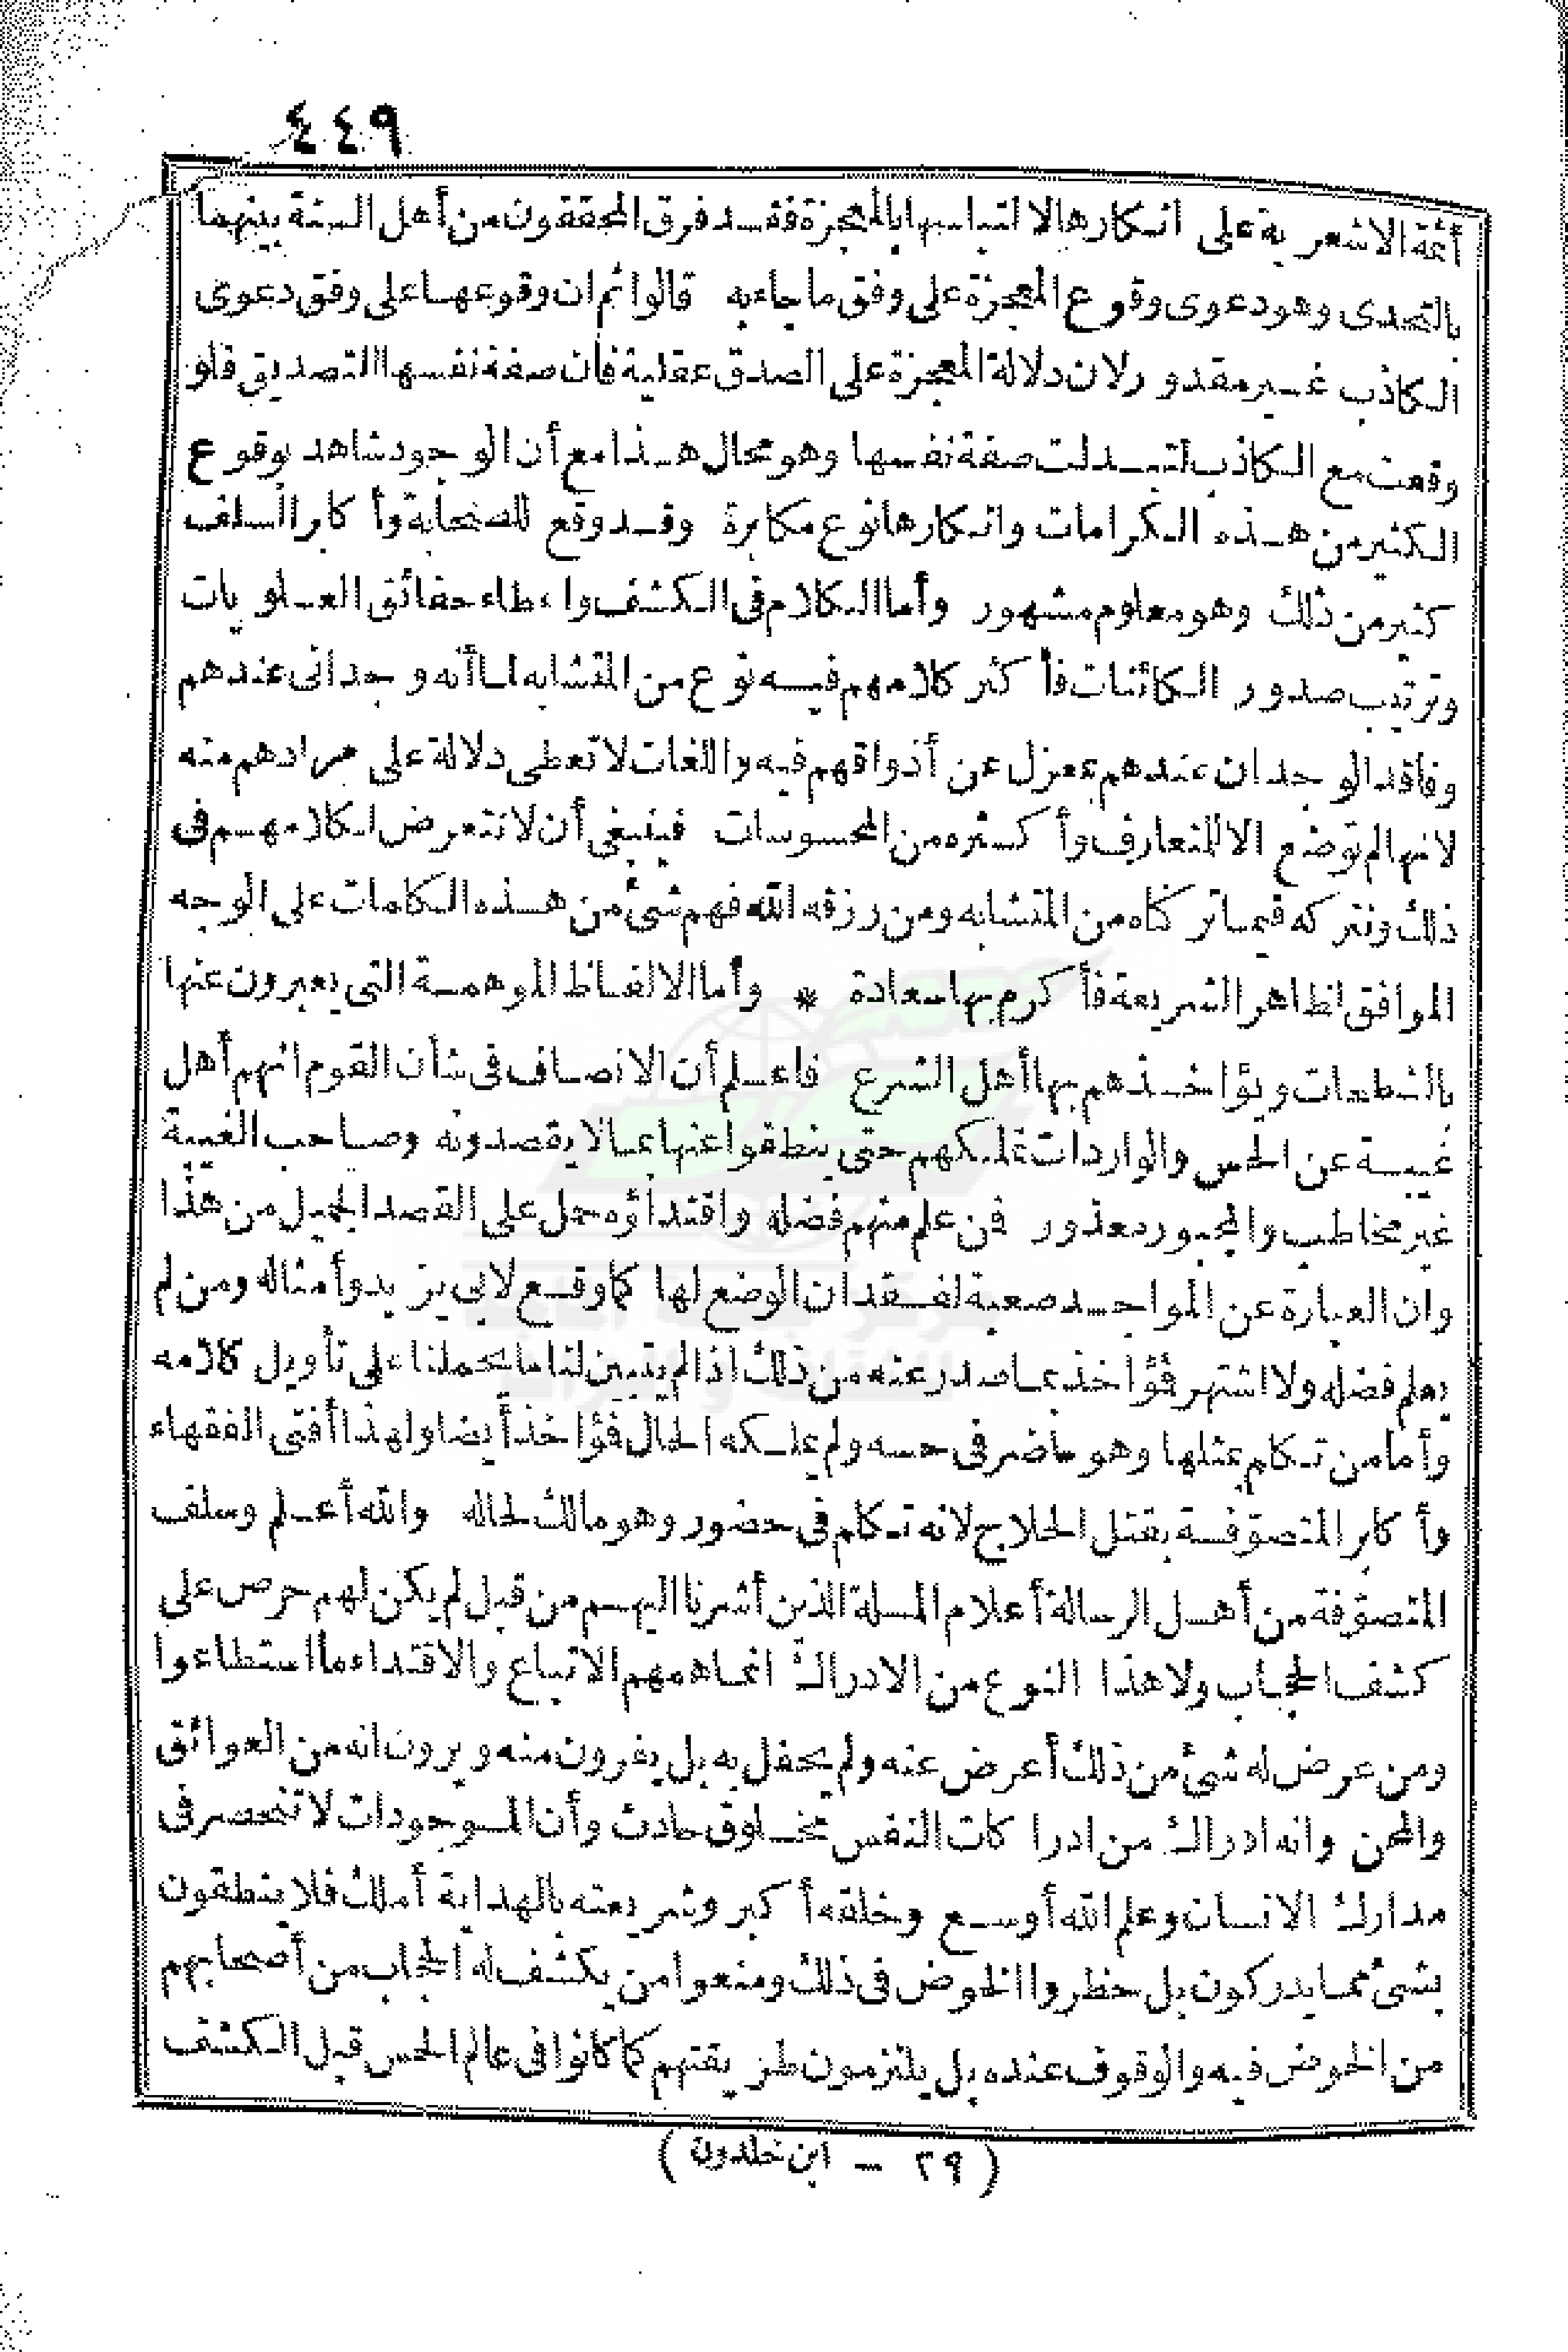 ٤٤٩
أئمة الاشعرية على انكارها لالتباسها بالمعجزة فقد فرق المحققون من أهل السنة بينهما
بالتحدى وهو دعوى وقوع المعجزة على وفق ما جاء به قالوا ثم ان وقوعها على وفق دعوى
الكاذب غير مقدور لان دلالة المعجزة على الصدق عقلية فان صفة نفسها التصديق فلو
وقعت مع الكاذب لتبدلت صفة نفسها وهو محال هذا مع أن الوجود شاهد بوقوع
الكثير من هذه الكرامات وانكارها نوع مكابرة وقد وقع للصحابة وأكابر السلف
كثير من ذلك وهو معلوم مشهور وأما الكلام فى الكشف واعطاء حقائق العلويات
وترتيب صدور الكائنات فأكثر كلامهم فيه نوع من المتشابه لما أنه وجدانى عندهم
وفاقد الوجدان عندهم بمعزل عن أذواقهم فيه واللغات لا تعطى دلالة على مرادهم منه
لانها لم توضع الا للمتعارف وأكثره من المحسوسات فينبغى أن لا نتعرض لكلامهم فى
ذلك ونتركه فيما تركناه من المتشابه ومن رزقه الله فهم شئ من هذه الكلمات على الوجه
الموافق لظاهر الشريعة فأكرم بها سعادة * وأما الالفاظ الموهمة التى يعبرون عنها
بالشطحات ويؤاخذهم بها أهل الشرع فاعلم أن الانصاف فى شأن القوم انهم أهل
غيبة عن الحس والواردات تملكهم حتى ينطقوا عنها بما لا يقصدونه وصاحب الغيبة
غير مخاطب والمجبور معذور فمن علم منهم فضله واقتداؤه حمل على القصد الجميل من هذا
وان العبارة عن المواجد صعبة لفقدان الوضع لها كما وقع لابى يزيد وأمثاله ومن لم
يعلم فضله ولا اشتهر فمؤاخذ بما صدر عنه من ذلك اذا لم يتبين لنا ما يحملنا على تأويل كلامه
وأما من تكلم بمثلها وهو حاضر فى حسه ولم يملكه الحال فمؤاخذ أيضا ولهذا أفتى الفقهاء
وأكابر المتصوّفة بقتل الحلاج لانه تكلم فى حضور وهو مالك لحاله والله أعلم وسلف
المتصوّفة من أهل الرسالة أعلام الملة الذين أشرنا اليهم من قبل لم يكن لهم حرص على
كشف الحجاب ولا هذا النوع من الادراك انما همهم الاتباع والاقتداء ما استطاعوا
ومن عرض له شئ من ذلك أعرض عنه ولم يحفل به بل يفرون منه ويرون انه من العوائق
والمحن وانه ادراك من ادراكات النفس مخلوق حادث وأن الموجودات لا تنحصر فى
مدارك الانسان وعلم الله أوسع وخلقه أكبر وشريعته بالهداية أملك فلا ينطقون
بشئ مما يدركون بل حظروا الخوض فى ذلك ومنعوا من يكشف له الحجاب من أصحابهم
من الخوض فيه والوقوف عنده بل يلتزمون طريقتهم كما كانوا فى عالم الحس قبل الكشف
( ٢٩ – ابن خلدون )